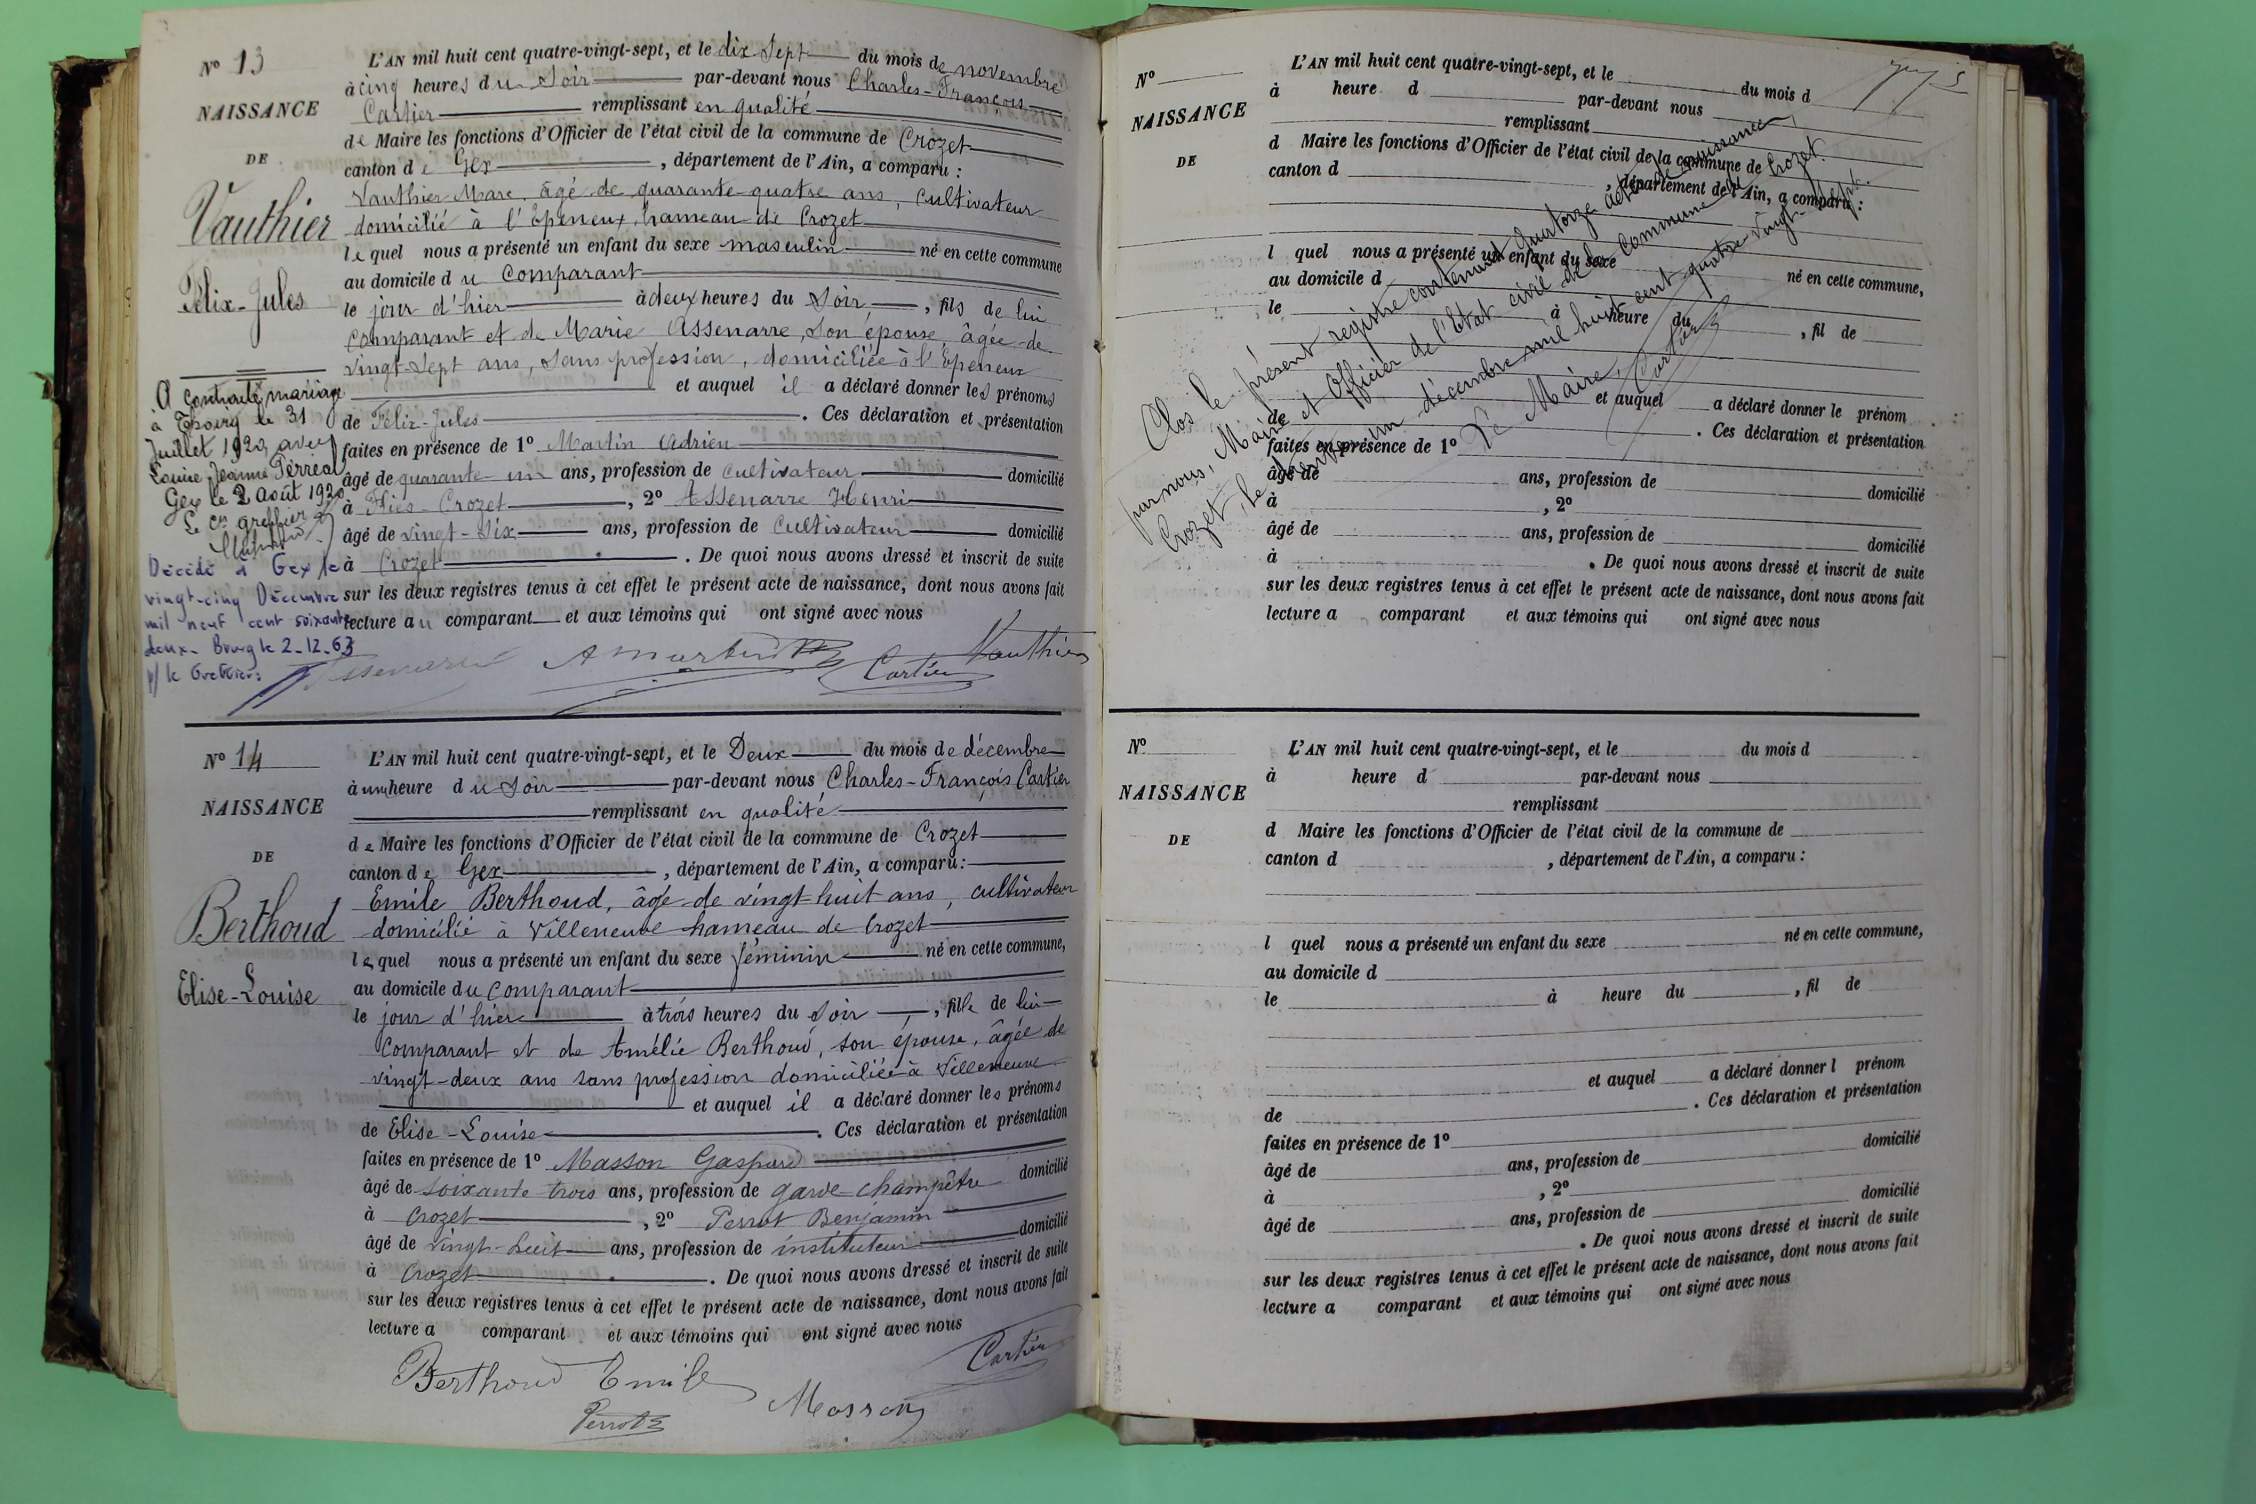 N° 13
NAISSANCE
DE
Vauthier
Félix-Jules
L'AN mil huit cent quatre-vingt-sept, et le dix Sept du mois de novembre
à cinq heures du Soir par-devant nous Charles-François
Cartier remplissant en qualité
de Maire les fonctions d'Officier de l'état civil de la commune de Crozet
canton de Gex, département de l'Ain, a comparu :
Vauthier Marc, âgé de quarante-quatre ans, cultivateur
domicilié à l'Epeneux, hameau de Crozet
lequel nous a présenté un enfant du sexe masculin né en cette commune
au domicile du comparant
le jour d'hier à deux heures du Soir, fils de lui
comparant et de Marie Assenarre, son épouse, âgée de
vingt-sept ans, sans profession, domiciliée à l'Epeneux
et auquel il a déclaré donner les prénoms
de Félix-Jules. Ces déclaration et présentation
faites en présence de 1° Martin Adrien
âgé de quarante un ans, profession de cultivateur domicilié
à Crozet, 2° Assenarre Henri
âgé de vingt-six ans, profession de cultivateur domicilié
à Crozet. De quoi nous avons dressé et inscrit de suite
sur les deux registres tenus à cet effet le présent acte de naissance, dont nous avons fait
lecture au comparant et aux témoins qui ont signé avec nous
A contracté mariage
à Thoiry le 31
Juillet 1920 avec
Louise Jeanne Perréal
Gex le 2 Août 1920
Le greffier
Décédé à Gex le
vingt-cinq Décembre
mil neuf cent soixante
deux. Bourg le 2-12-63
p/ le Greffier:
Assenarre AMartin Cartier Vauthier
N° 14
NAISSANCE
DE
Berthoud
Elise-Louise
L'AN mil huit cent quatre-vingt-sept, et le Deux du mois de décembre
à une heure du Soir par-devant nous Charles-François Cartier
remplissant en qualité
de Maire les fonctions d'Officier de l'état civil de la commune de Crozet
canton de Gex, département de l'Ain, a comparu :
Emile Berthoud, âgé de vingt-huit ans, cultivateur
domicilié à Villeneuve hameau de Crozet
lequel nous a présenté un enfant du sexe féminin né en cette commune,
au domicile du comparant
le jour d'hier à trois heures du Soir, fille de lui
comparant et de Amélie Berthoud, son épouse, âgée de
vingt-deux ans sans profession domiciliée à Villeneuve
et auquel il a déclaré donner les prénoms
de Elise-Louise. Ces déclaration et présentation
faites en présence de 1° Masson Gaspard
âgé de soixante trois ans, profession de garde champêtre domicilié
à Crozet, 2° Perrot Benjamin
âgé de vingt-huit ans, profession de instituteur domicilié
à Crozet. De quoi nous avons dressé et inscrit de suite
sur les deux registres tenus à cet effet le présent acte de naissance, dont nous avons fait
lecture a comparant et aux témoins qui ont signé avec nous
Berthoud Emile Cartier
Perrot Masson
N°
NAISSANCE
DE
L'AN mil huit cent quatre-vingt-sept, et le du mois d
à heure d par-devant nous
remplissant
d Maire les fonctions d'Officier de l'état civil de la commune de
canton d , département de l'Ain, a comparu :
l quel nous a présenté un enfant du sexe né en cette commune,
au domicile d
le à heure du , fil de
et auquel a déclaré donner le prénom
de . Ces déclaration et présentation
faites en présence de 1°
âgé de ans, profession de domicilié
à , 2°
âgé de ans, profession de domicilié
à . De quoi nous avons dressé et inscrit de suite
sur les deux registres tenus à cet effet le présent acte de naissance, dont nous avons fait
lecture a comparant et aux témoins qui ont signé avec nous
Clos le présent registre contenant quatorze actes de naissance,
par nous, Maire et Officier de l'Etat civil de la Commune de Crozet.
Crozet, le trente un décembre mil huit cent quatre-vingt-sept.
Le Maire,
Cartier
N°
NAISSANCE
DE
L'AN mil huit cent quatre-vingt-sept, et le du mois d
à heure d par-devant nous
remplissant
d Maire les fonctions d'Officier de l'état civil de la commune de
canton d , département de l'Ain, a comparu :
l quel nous a présenté un enfant du sexe né en cette commune,
au domicile d
le à heure du , fil de
et auquel a déclaré donner l prénom
de . Ces déclaration et présentation
faites en présence de 1°
âgé de ans, profession de domicilié
à , 2°
âgé de ans, profession de domicilié
. De quoi nous avons dressé et inscrit de suite
sur les deux registres tenus à cet effet le présent acte de naissance, dont nous avons fait
lecture a comparant et aux témoins qui ont signé avec nous